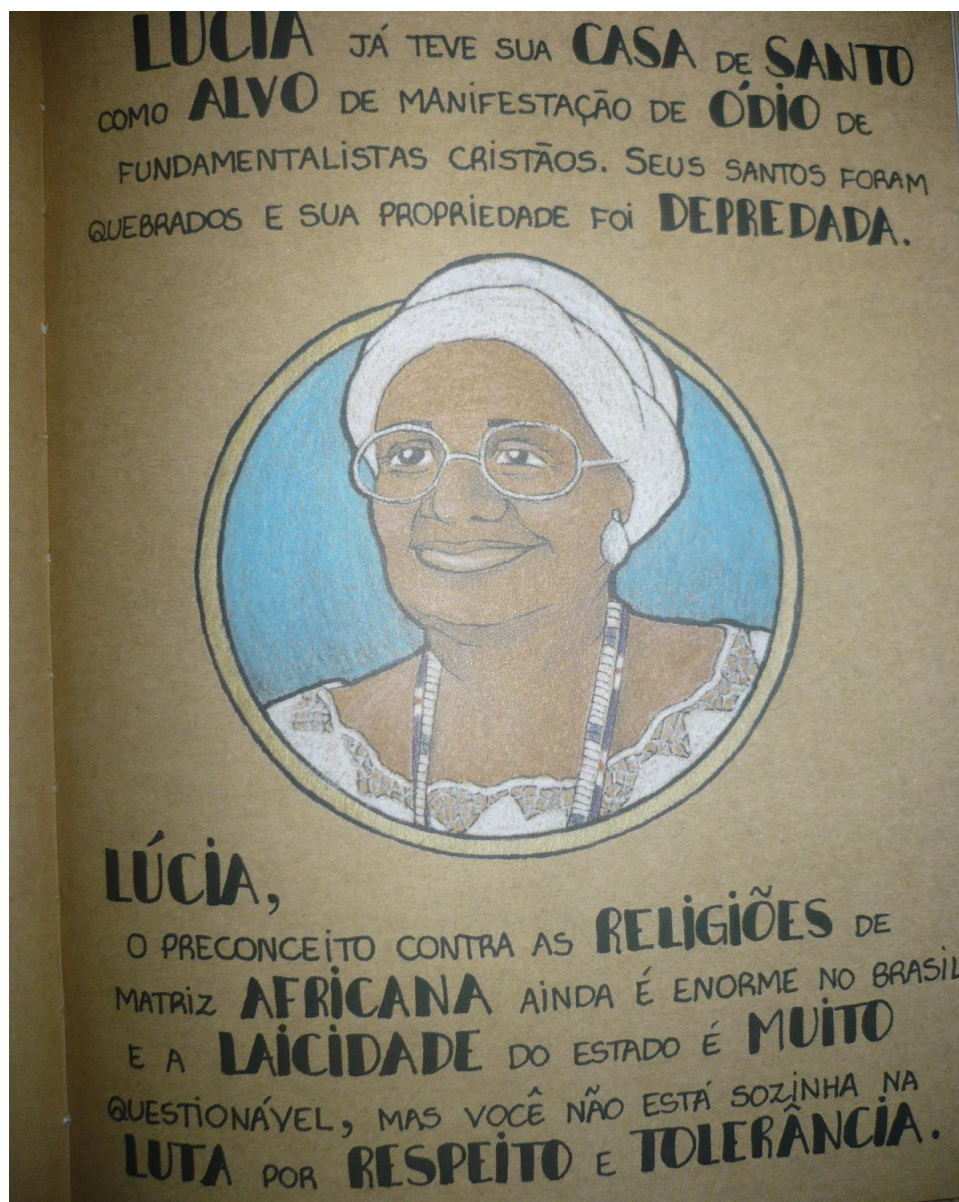 LÚCIA JÁ TEVE SUA CASA DE SANTO
COMO ALVO DE MANIFESTAÇÃO DE ÓDIO DE
FUNDAMENTALISTAS CRISTÃOS. SEUS SANTOS FORAM
QUEBRADOS E SUA PROPRIEDADE FOI DEPREDADA.
LÚCIA,
O PRECONCEITO CONTRA AS RELIGIÕES DE
MATRIZ AFRICANA AINDA É ENORME NO BRASIL
E A LAICIDADE DO ESTADO É MUITO
QUESTIONÁVEL, MAS VOCÊ NÃO ESTÁ SOZINHA NA
LUTA POR RESPEITO E TOLERÂNCIA.